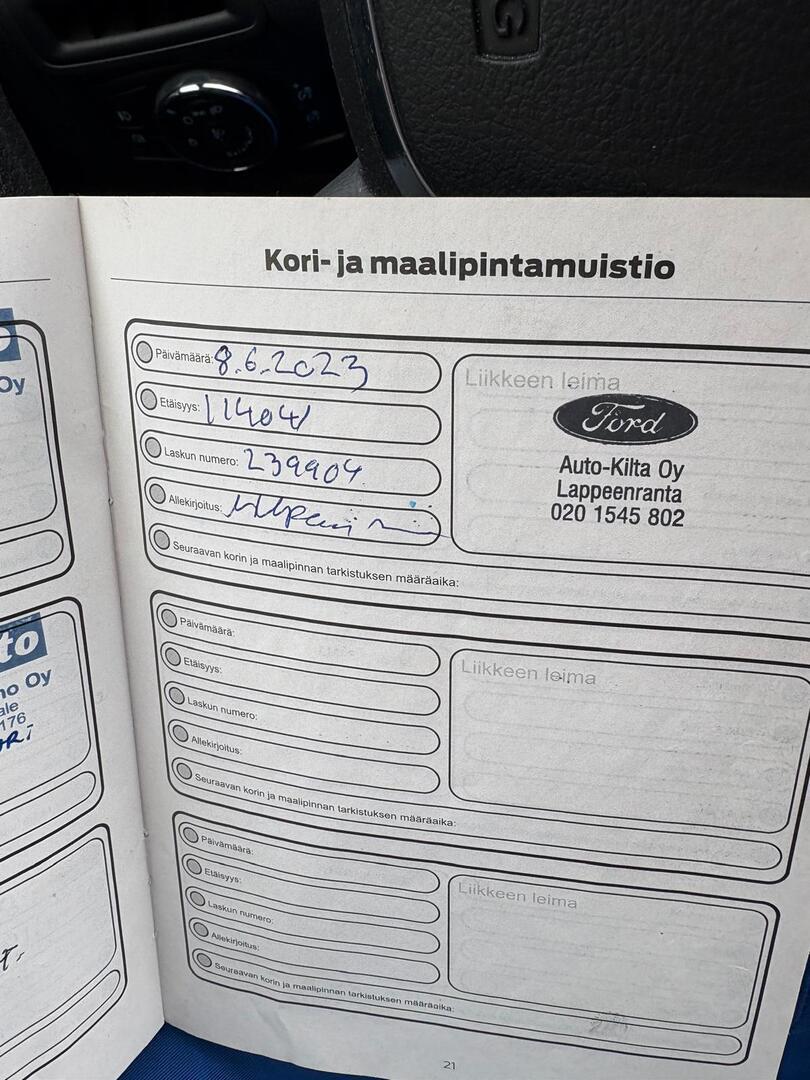 Oy
to
no Oy
ale
176
Kori- ja maalipintamuistio
Päivämäärä: 8.6.2023
Etäisyys: 114041
Laskun numero: 239904
Allekirjoitus:
Seuraavan korin ja maalipinnan tarkistuksen määräaika:
Liikkeen leima
Ford
Auto-Kilta Oy
Lappeenranta
020 1545 802
Päivämäärä:
Etäisyys:
Laskun numero:
Allekirjoitus:
Seuraavan korin ja maalipinnan tarkistuksen määräaika:
Liikkeen leima
Päivämäärä:
Etäisyys:
Laskun numero:
Allekirjoitus:
Seuraavan korin ja maalipinnan tarkistuksen määräaika:
Liikkeen leima
21